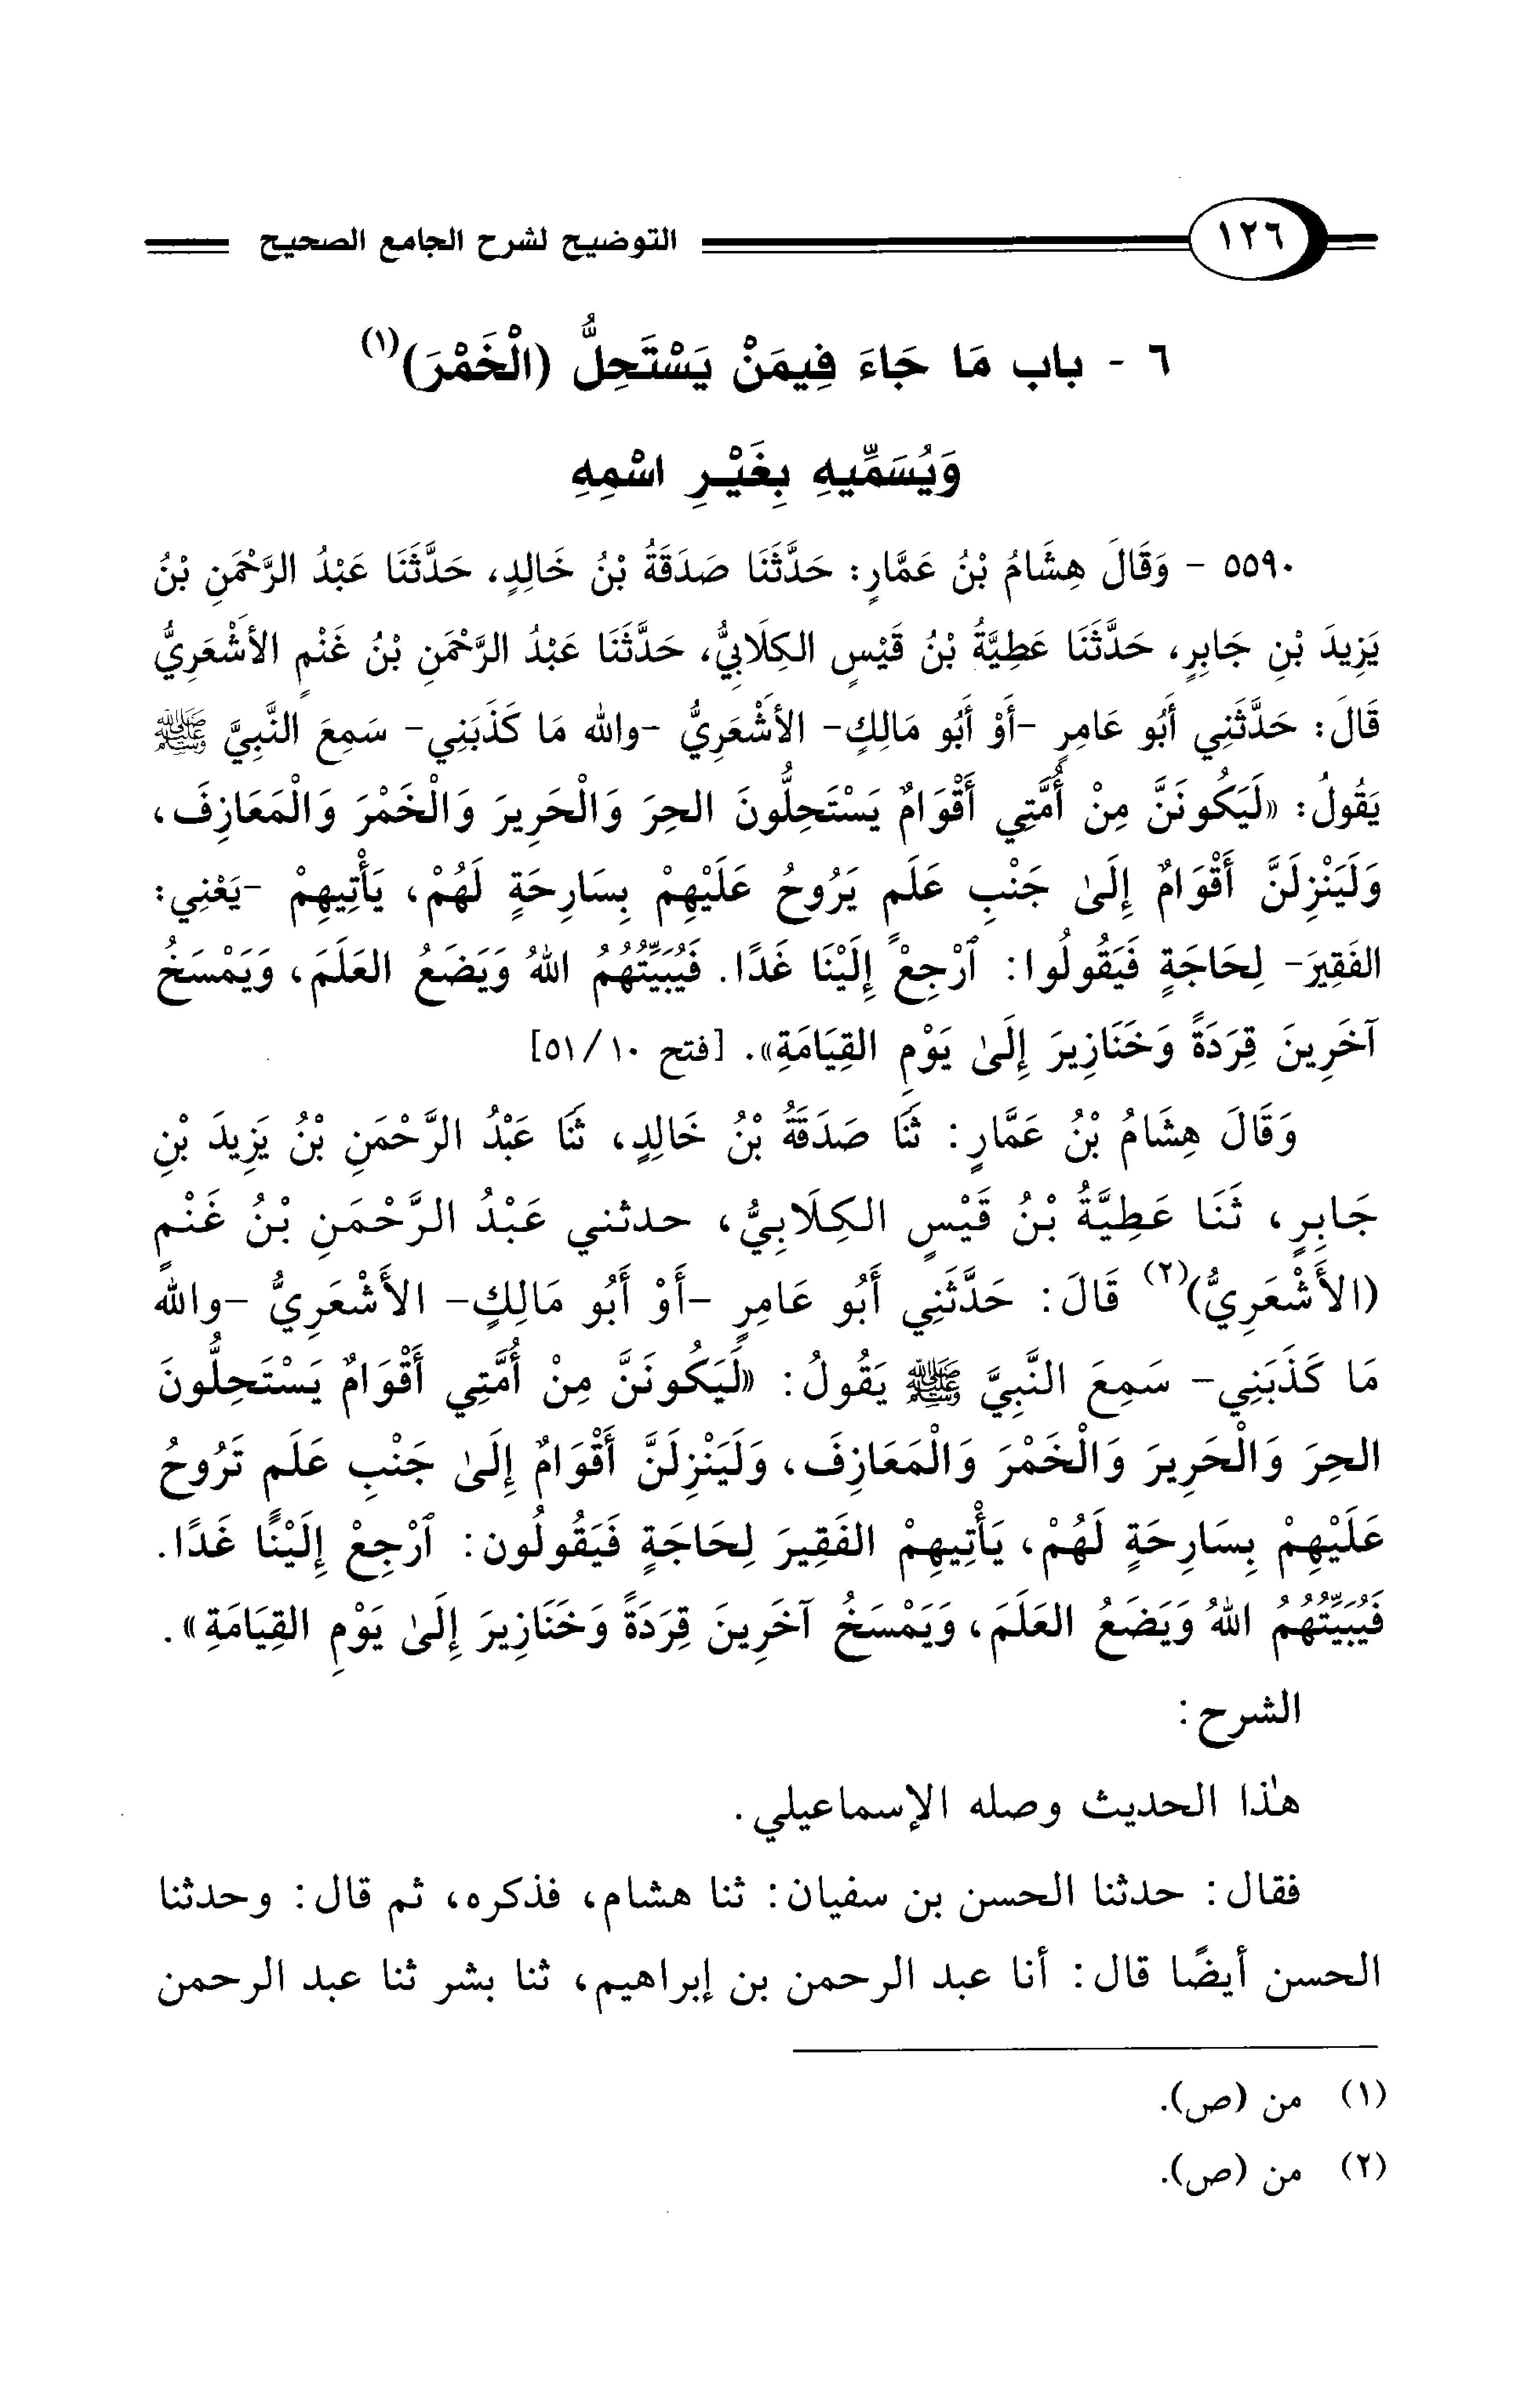 ١٢٦ التوضيح لشرح الجامع الصحيح
٦ - باب مَا جَاءَ فِيمَنْ يَسْتَحِلُّ (الْخَمْرَ)(١)
وَيُسَمِّيهِ بِغَيْرِ اسْمِهِ
٥٥٩٠ - وَقَالَ هِشَامُ بْنُ عَمَّارٍ: حَدَّثَنَا صَدَقَةُ بْنُ خَالِدٍ، حَدَّثَنَا عَبْدُ الرَّحْمَنِ بْنُ
يَزِيدَ بْنِ جَابِرٍ، حَدَّثَنَا عَطِيَّةُ بْنُ قَيْسٍ الكِلَابِيُّ، حَدَّثَنَا عَبْدُ الرَّحْمَنِ بْنُ غَنْمٍ الأَشْعَرِيُّ
قَالَ: حَدَّثَنِي أَبُو عَامِرٍ -أَوْ أَبُو مَالِكٍ- الأَشْعَرِيُّ -والله مَا كَذَبَنِي- سَمِعَ النَّبِيَّ ﷺ
يَقُولُ: «لَيَكُونَنَّ مِنْ أُمَّتِي أَقْوَامٌ يَسْتَحِلُّونَ الحِرَ وَالْحَرِيرَ وَالْخَمْرَ وَالْمَعَازِفَ،
وَلَيَنْزِلَنَّ أَقْوَامٌ إِلَىٰ جَنْبِ عَلَمٍ يَرُوحُ عَلَيْهِمْ بِسَارِحَةٍ لَهُمْ، يَأْتِيهِمْ -يَعْنِي:
الفَقِيرَ- لِحَاجَةٍ فَيَقُولُوا: ٱرْجِعْ إِلَيْنَا غَدًا. فَيُبَيِّتُهُمُ اللهُ وَيَضَعُ العَلَمَ، وَيَمْسَخُ
آخَرِينَ قِرَدَةً وَخَنَازِيرَ إِلَىٰ يَوْمِ القِيَامَةِ». [فتح ١٠/٥١]
وَقَالَ هِشَامُ بْنُ عَمَّارٍ: ثَنَا صَدَقَةُ بْنُ خَالِدٍ، ثَنَا عَبْدُ الرَّحْمَنِ بْنُ يَزِيدَ بْنِ
جَابِرٍ، ثَنَا عَطِيَّةُ بْنُ قَيْسٍ الكِلَابِيُّ، حدثني عَبْدُ الرَّحْمَنِ بْنُ غَنْمٍ
(الأَشْعَرِيُّ)(٢) قَالَ: حَدَّثَنِي أَبُو عَامِرٍ -أَوْ أَبُو مَالِكٍ- الأَشْعَرِيُّ -والله
مَا كَذَبَنِي- سَمِعَ النَّبِيَّ ﷺ يَقُولُ: «لَيَكُونَنَّ مِنْ أُمَّتِي أَقْوَامٌ يَسْتَحِلُّونَ
الحِرَ وَالْحَرِيرَ وَالْخَمْرَ وَالْمَعَازِفَ، وَلَيَنْزِلَنَّ أَقْوَامٌ إِلَىٰ جَنْبِ عَلَمٍ تَرُوحُ
عَلَيْهِمْ بِسَارِحَةٍ لَهُمْ، يَأْتِيهِمْ الفَقِيرَ لِحَاجَةٍ فَيَقُولُون: ٱرْجِعْ إِلَيْنًا غَدًا.
فَيُبَيِّتُهُمُ اللهُ وَيَضَعُ العَلَمَ، وَيَمْسَخُ آخَرِينَ قِرَدَةً وَخَنَازِيرَ إِلَىٰ يَوْمِ القِيَامَةِ».
الشرح:
هٰذا الحديث وصله الإسماعيلي.
فقال: حدثنا الحسن بن سفيان: ثنا هشام، فذكره، ثم قال: وحدثنا
الحسن أيضًا قال: أنا عبد الرحمن بن إبراهيم، ثنا بشر ثنا عبد الرحمن
(١) من (ص).
(٢) من (ص).